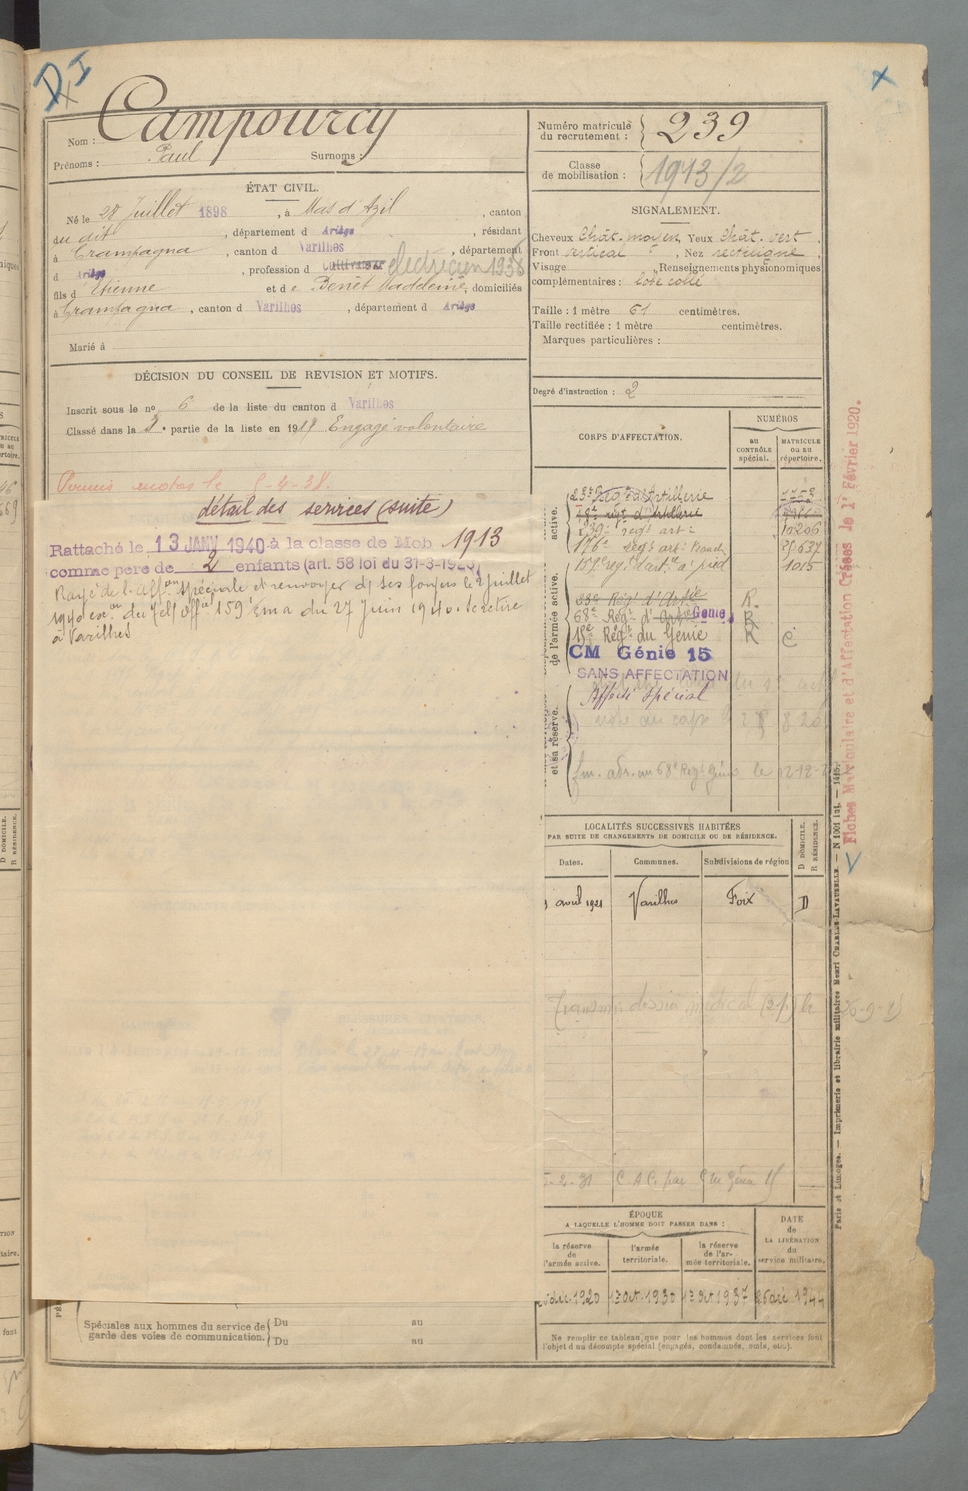 Nom : Campourcy
Prénoms : Paul Surnoms :
ÉTAT CIVIL.
Né le 28 Juillet 1898, à Mas d'Azil, canton
du dit, département d Ariège, résidant
à Crampagna, canton d Varilhes, département
d Ariège, profession d Cultivateur électricien 1938
fils d Etienne et de Benêt Madeleine, domiciliés
à Crampagna, canton d Varilhes, département d Ariège
Marié à
DÉCISION DU CONSEIL DE REVISION ET MOTIFS.
Inscrit sous le no 6 de la liste du canton d Varilhes
Classé dans la 3e partie de la liste en 1918 Engagé volontaire
Permis motos le 8-4-38.
détail des services (suite)
Rattaché le 13 JANV 1940 à la classe de Mob 1913
comme père de 2 enfants (art. 58 loi du 31-3-1928)
Rayé de l'aff. on spéciale et renvoyé d ses foyers le 2 juillet
1940 du 159 Ema du 27 Juin 1940. Se retire
à Varilhes
Spéciales aux hommes du service de
garde des voies de communication.
Du au
Du au
Numéro matricule
du recrutement : 239
Classe
de mobilisation : 1913/2
SIGNALEMENT.
Cheveux Chât. moyen, Yeux Chât. vert,
Front vertical, Nez rectiligne,
Visage , Renseignements physionomiques
complémentaires :
Taille : 1 mètre 61 centimètres.
Taille rectifiée : 1 mètre centimètres.
Marques particulières :
Degré d'instruction : 2
CORPS D'AFFECTATION.
NUMÉROS
au
CONTRÔLE
spécial.
MATRICULE
ou au
répertoire.
active.
23e Régt d'Artillerie
18e régt d'Artillerie
239e régt art. 10206
176e régt art.
157e rég. d'art. à pied 1015
de l'armée active.
68e Régt d'Art Génie R
15e Régt du Génie R C
CM Génie 15
SANS AFFECTATION
Affecté Spécial
et sa réserve.
68e Régt Génie le
LOCALITÉS SUCCESSIVES HABITÉES
PAR SUITE DE CHANGEMENTS DE DOMICILE OU DE RÉSIDENCE.
Dates. Communes. Subdivisions de région
D DOMICILE.
R RÉSIDENCE.
avril 1921 Varilhes Foix D
Transmis dossier médical (2 p) le
2-31 C A C. par Génie
ÉPOQUE
A LAQUELLE L'HOMME DOIT PASSER DANS :
DATE
de
LA LIBÉRATION
du
service militaire.
la réserve
de
l'armée active.
l'armée
territoriale.
la réserve
de l'ar-
mée territoriale.
1920 1er oct. 1930 1er oct 1937 1944
Ne remplir ce tableau que pour les hommes dont les services font
l'objet d'un décompte spécial (engagés, condamnés, omis, etc.).
Fiches Matriculaire et d'Affectation Créées le 1er Février 1920.
Paris et Limoges. — Imprimerie et librairie militaires Henri CHARLES-LAVAUZELLE. — N 1001 int. — 1415.